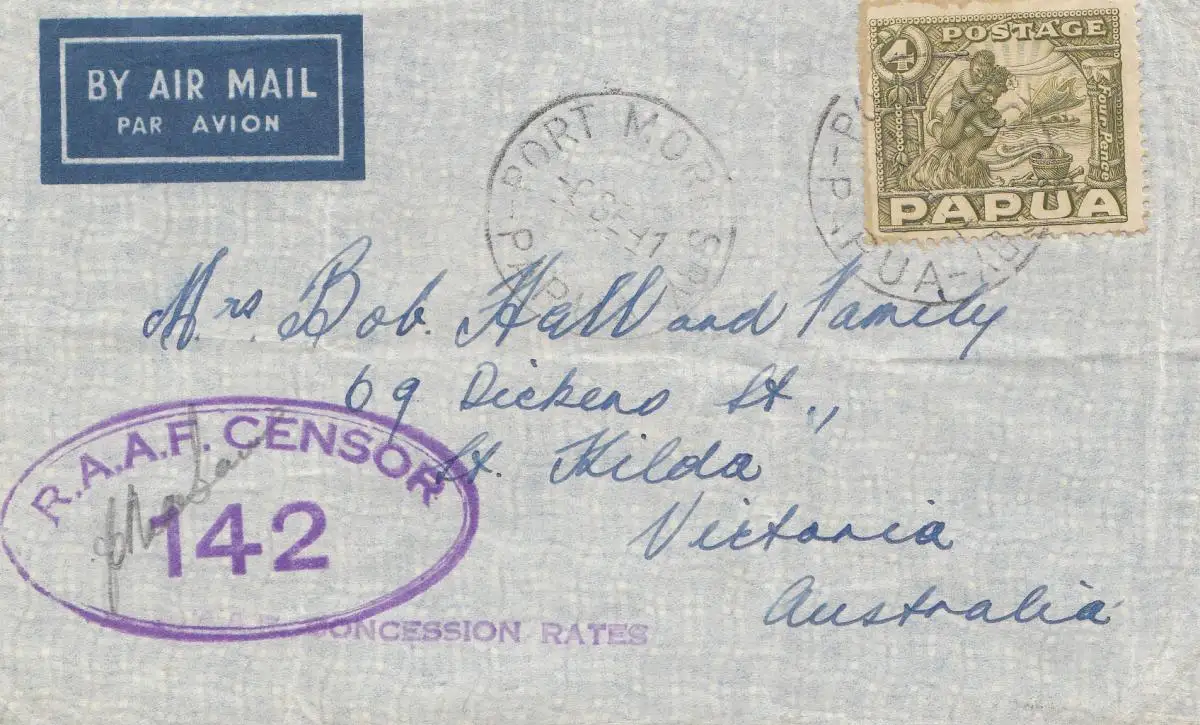 BY AIR MAIL
PAR AVION
POSTAGE
4
Four Pence
PAPUA
PORT MOR
Mrs. Bob. Hall and Family
69 Dickens St.,
St. Kilda
Victoria
Australia
R.A.A.F. CENSOR
142
CONCESSION RATES